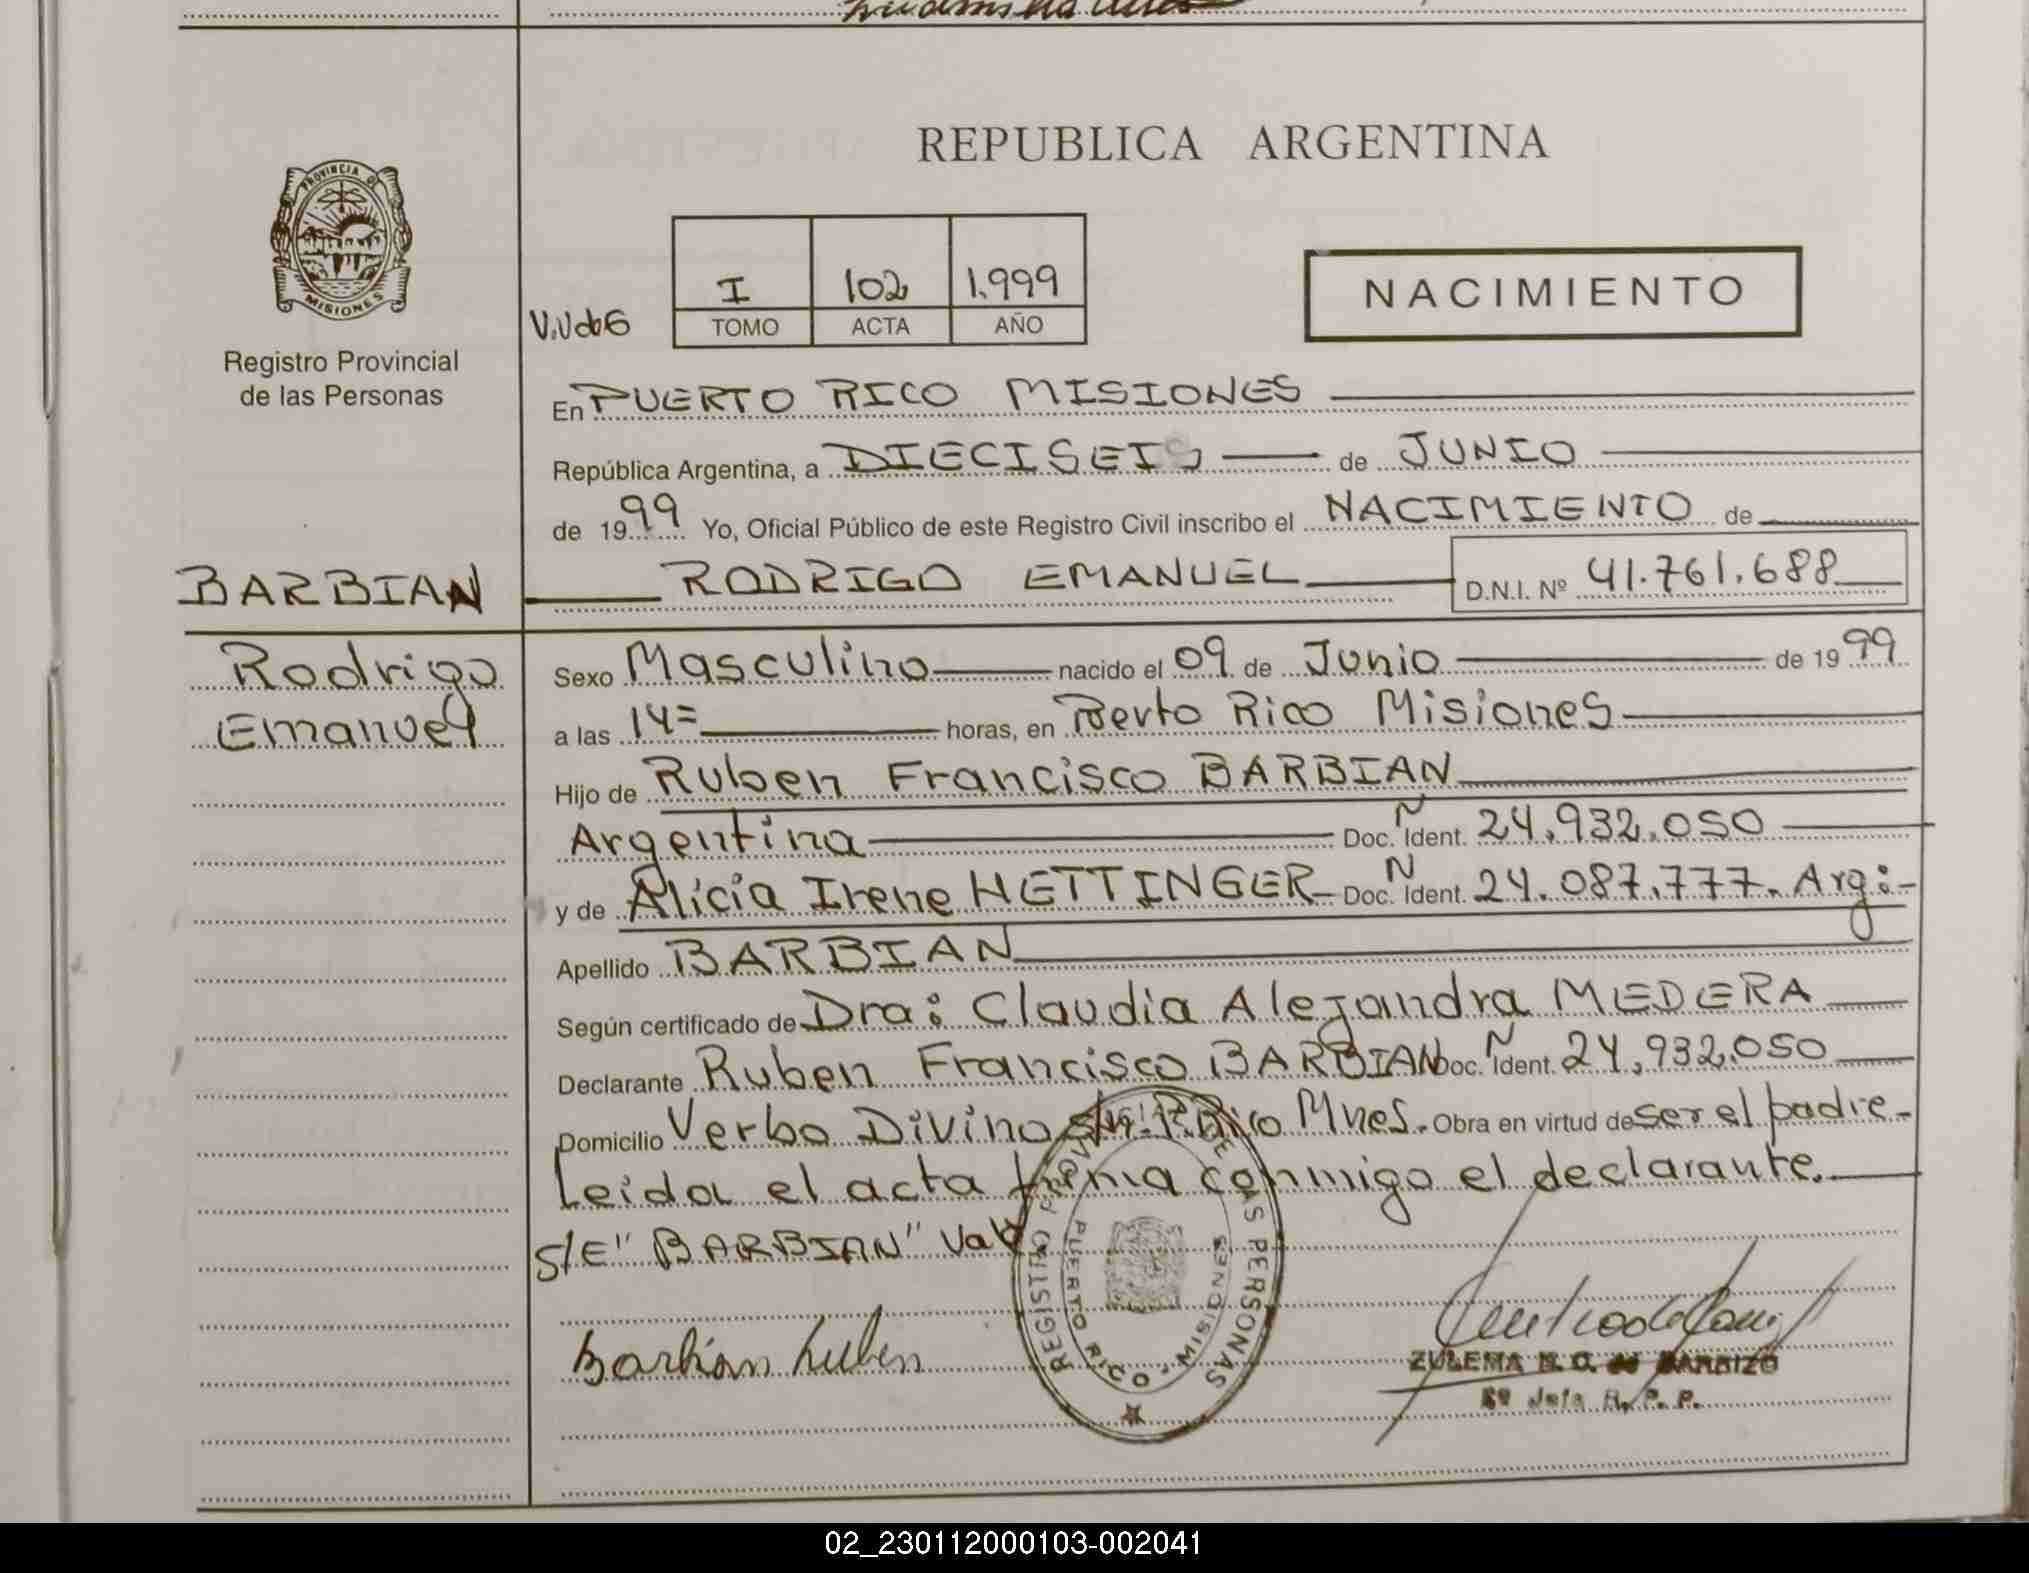 REPUBLICA ARGENTINA
PROVINCIA DE
MISIONES
Registro Provincial
de las Personas
I 102 1.999
TOMO ACTA AÑO
NACIMIENTO
En PUERTO RICO MISIONES
República Argentina, a DIECISEIS de JUNIO
de 1999 Yo, Oficial Público de este Registro Civil inscribo el NACIMIENTO de
BARBIAN RODRIGO EMANUEL D.N.I. Nº 41.761.688
Rodrigo
Emanuel
Sexo Masculino nacido el 09 de Junio de 1999
a las 14= horas, en Puerto Rico Misiones
Hijo de Ruben Francisco BARBIAN
Argentina Doc. Ñ Ident. 24.932.050
y de Alicia Irene HETTINGER Doc. N Ident. 24.087.777. Arg:-
Apellido BARBIAN
Según certificado de Dra: Claudia Alejandra MEDERA
Declarante Ruben Francisco BARBIAN Doc. Ñ Ident. 24.932.050
Domicilio Verbo Divino s/n. P. Rico Mnes. Obra en virtud de ser el padre.-
Leida el acta firma conmigo el declarante.
S/E "BARBIAN" Vale
REGISTRO PROVINCIAL DE LAS PERSONAS
PUERTO RICO - MISIONES
Barbian Ruben
ZULEMA
R. P. P.
02_230112000103-002041